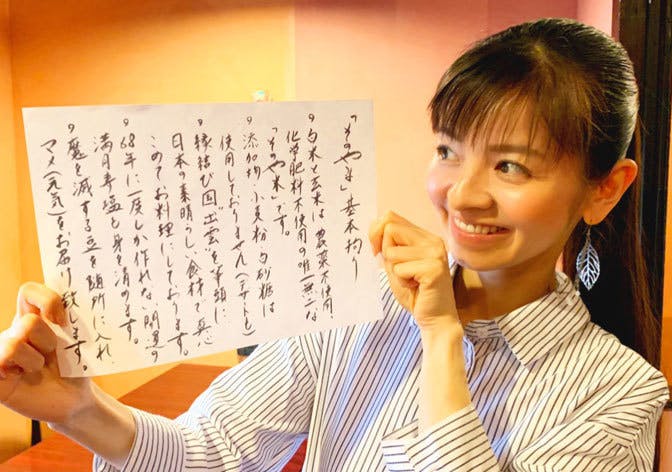 「そのやま」基本拘り
9白米と玄米は農薬不使用、
化学肥料不使用の唯一無二な
「そのやま」です。
9添加物・小麦粉・白砂糖は
使用しておりません(デザートも)
9縁結び国"出雲"を筆頭に
日本の素晴らしい食材で真心
こめてお料理にしております。
968年に一度しか作れない開運の
満月寿塩で身を清めます。
9魔を滅する豆を随所に入れ、
マメ(元気)をお届け致します。